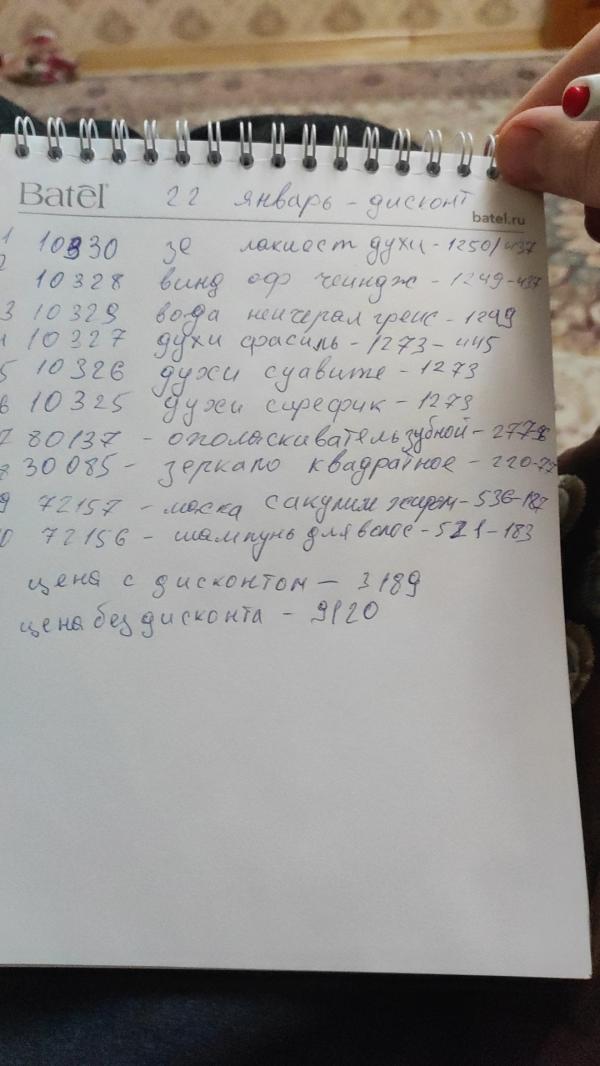 Batel 22 январь - дисконт
batel.ru
1 10330 зе лакиаст духи - 1250/437
2 10328 винд оф чеиндж - 1249-437
3 10329 вода неичерал греис - 1249
4 10327 духи фрасиль - 1273 - 445
5 10326 духи суавиже - 1273
6 10325 духи сирефик - 1273
7 80137 - ополаскиватель зубной - 277-
8 30085 - зеркало квадратное - 220-77
9 72157 - маска с акульим жиром - 536-187
10 72156 - шампунь для волос - 521 - 183
цена с дисконтом - 3189
цена без дисконта - 9120